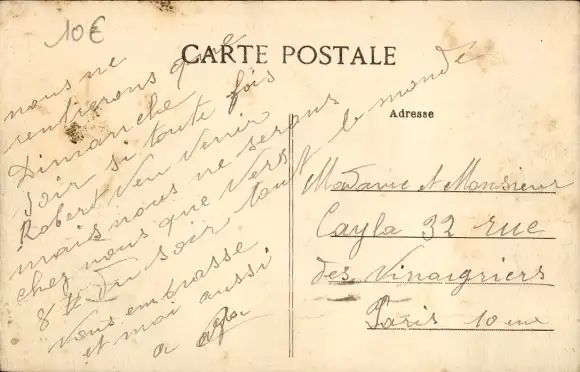 10€
CARTE POSTALE
nous ne
rentrerons que
Dimanche
soir si toute fois
Robert veu venir
mais nous ne serons
chez nous que vers
8 H du soir tout le monde
vous embrasse
et moi aussi
a
Adresse
Madame et Monsieur
Cayla 32 rue
des Vinaigriers
Paris 10 eme